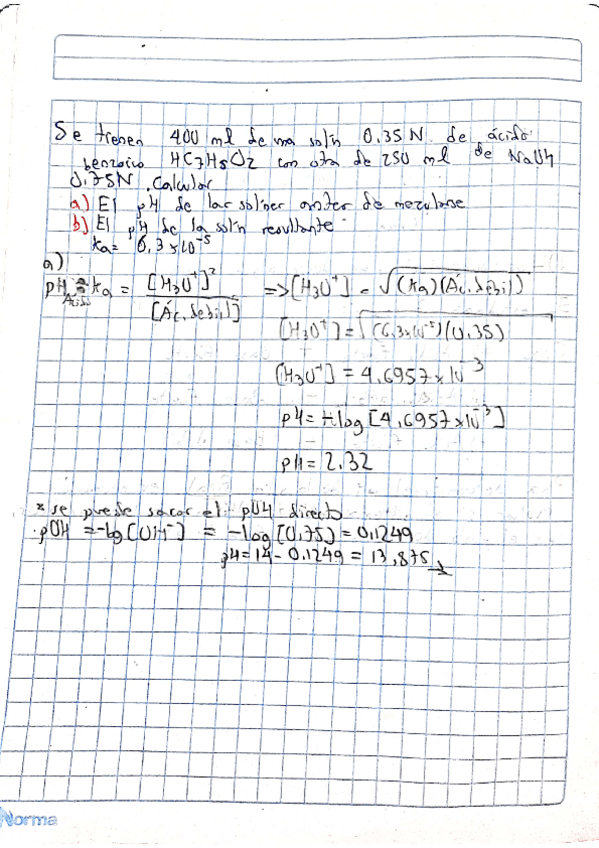 Se tienen 400 ml de una soln 0.35 N de ácido
benzoico HC7H5O2 con otra de 250 ml de NaOH
0.75N. Calcular
a) El pH de las solnes antes de mezclarse
b) El pH de la soln resultante
Ka= 6.3x10⁻⁵
a)
pH Ácido Ka = [H3O⁺]² / [Ác. débil] => [H3O⁺] = √(Ka)(Ác. débil)
[H3O⁺] = √(6.3x10⁻⁵)(0.35)
[H3O⁺] = 4.6957x10⁻³
pH = -log[4.6957x10⁻³]
pH = 2.32
* se puede sacar el pOH directo
pOH = -log[OH⁻] = -log[0.75] = 0.1249
pH = 14 - 0.1249 = 13,875
Norma